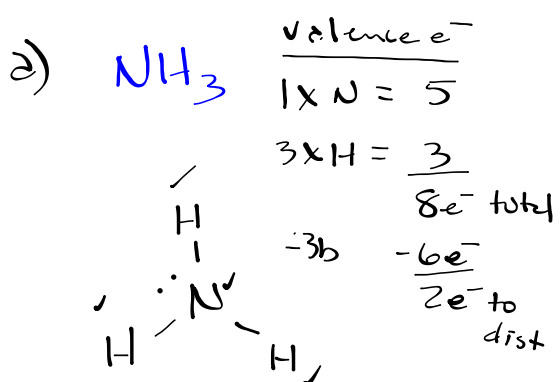 a) NH₃ valence e⁻
1 x N = 5
3 x H = 3
8e⁻ total
-3b -6e⁻
2e⁻ to
dist
H
N
H H